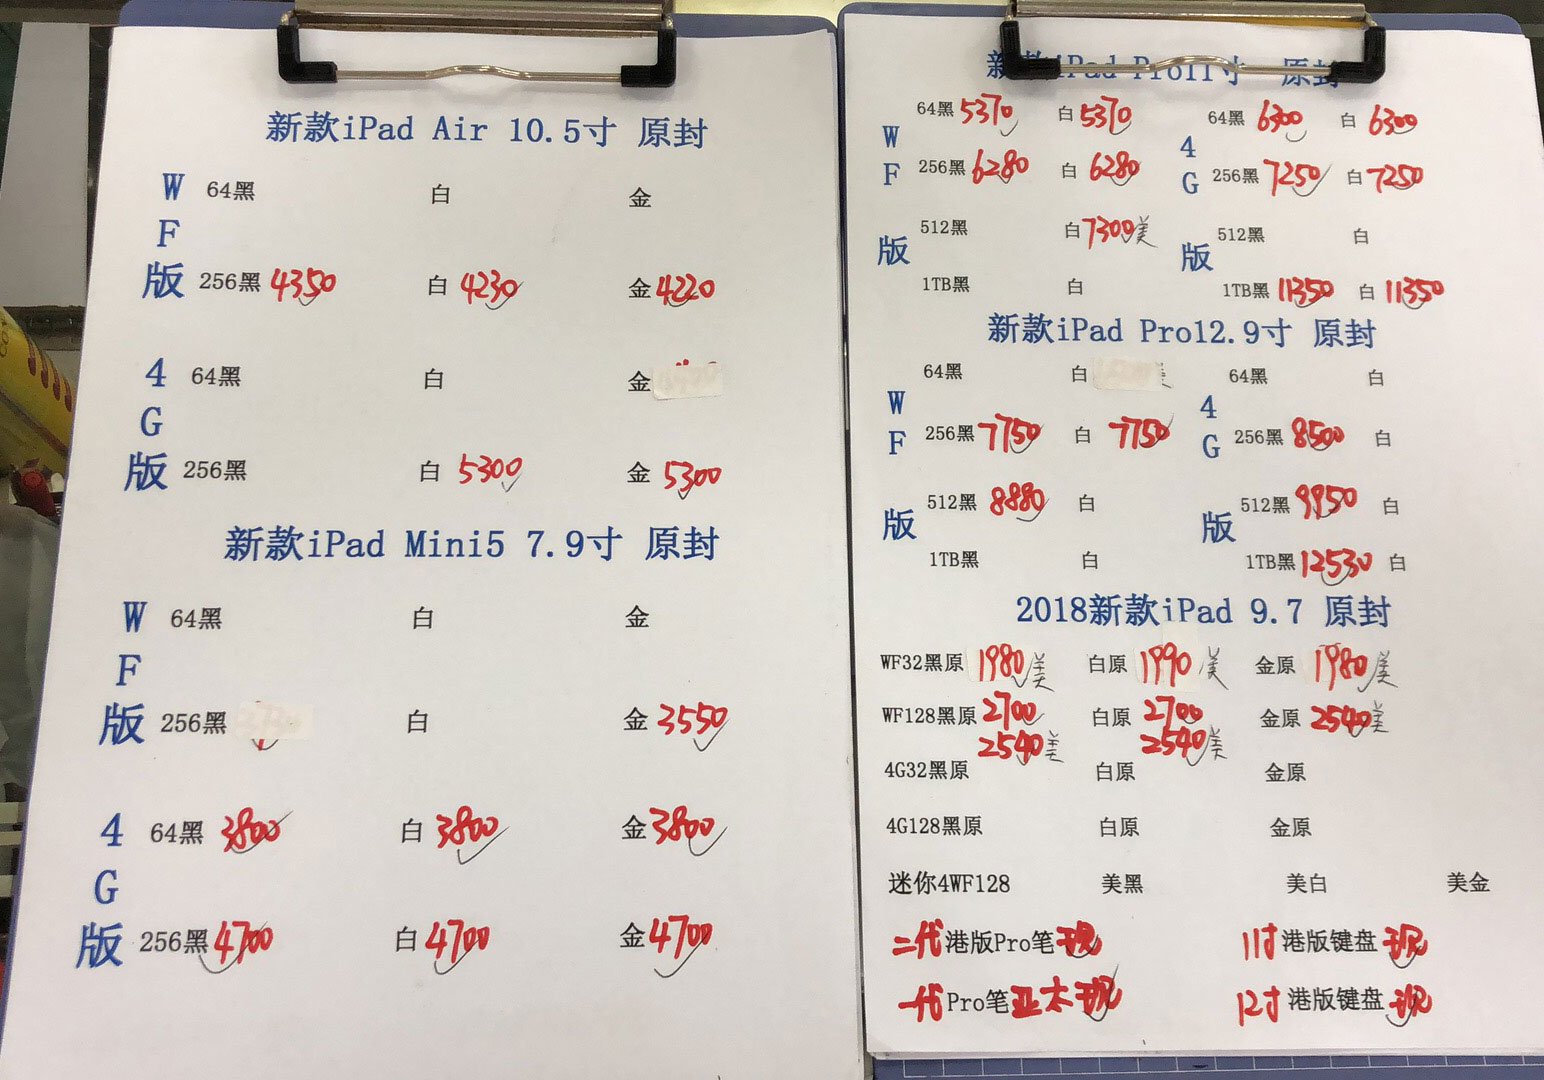 新款iPad Air 10.5寸 原封
WF版
64黑 白 金
256黑 4350 白 4230 金 4220
4G版
64黑 白 金
256黑 白 5300 金 5300
新款iPad Mini5 7.9寸 原封
WF版
64黑 白 金
256黑 白 金 3550
4G版
64黑 3800 白 3800 金 3800
256黑 4700 白 4700 金 4700
新款iPad Pro11寸 原封
WF版
64黑 5370 白 5370
256黑 6280 白 6280
512黑 白 7300 美
1TB黑 白
4G版
64黑 6300 白 6300
256黑 7250 白 7250
512黑 白
1TB黑 11350 白 11350
新款iPad Pro12.9寸 原封
WF版
64黑 白 美
256黑 7750 白 7750
512黑 8880 白
1TB黑 白
4G版
64黑 白
256黑 8500 白
512黑 9950 白
1TB黑 12530 白
2018新款iPad 9.7 原封
WF32黑原 1980 美 白原 1990 美 金原 1980 美
WF128黑原 2700 白原 2700 金原 2540 美
2540 美 2540 美
4G32黑原 白原 金原
4G128黑原 白原 金原
迷你4WF128 美黑 美白 美金
二代 港版Pro笔 现 11寸 港版键盘 现
一代 Pro笔 亚太 现 12寸 港版键盘 现